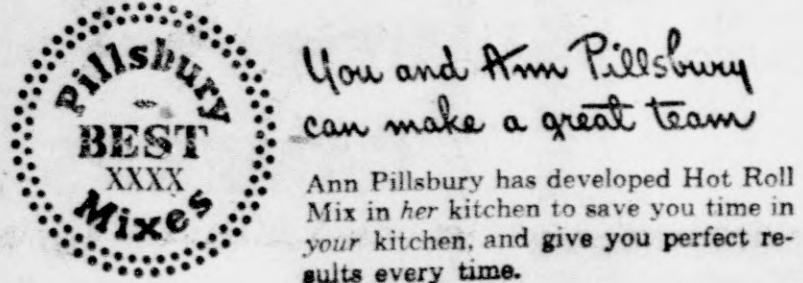 Pillsbury
BEST
XXXX
Mixes
You and Ann Pillsbury
can make a great team
Ann Pillsbury has developed Hot Roll
Mix in her kitchen to save you time in
your kitchen, and give you perfect re-
sults every time.